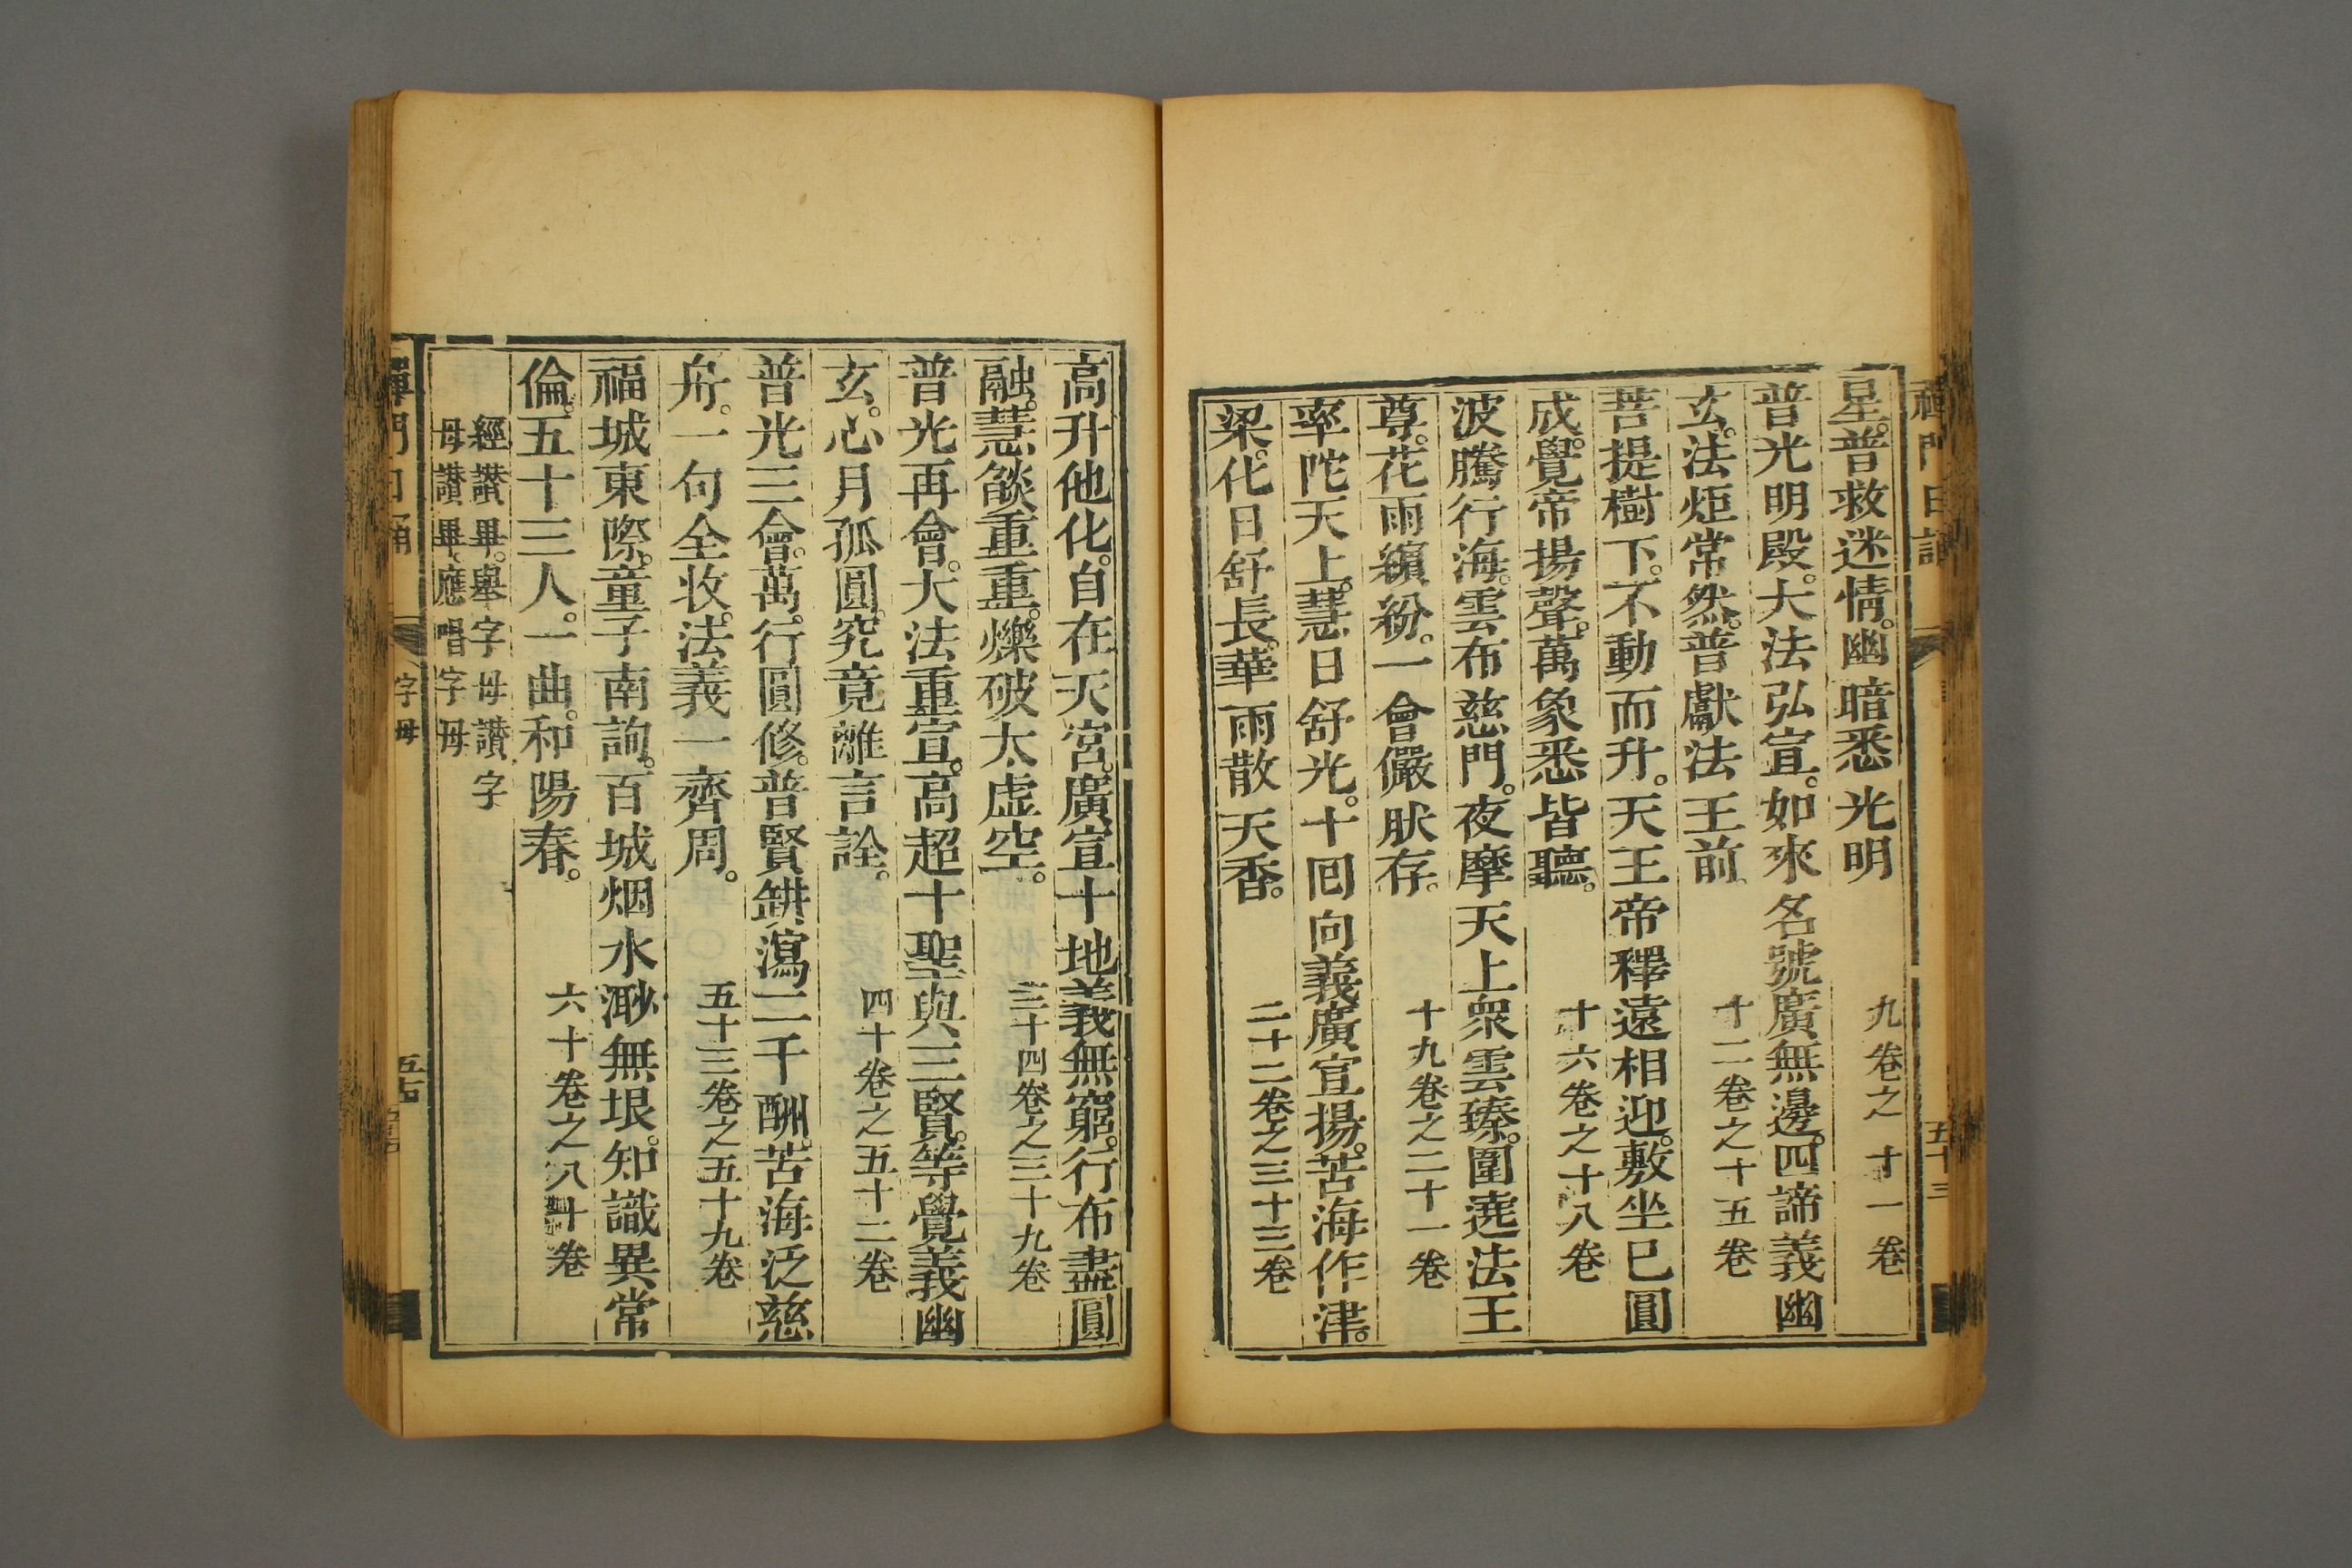 禪門日誦
五十三
星。普救迷情。幽暗悉光明 九卷之十一卷
普光明殿。大法弘宣。如來名號廣無邊。四諦義幽
玄。法炬常然。普獻法王前 十二卷之十五卷
菩提樹下。不動而升。天王帝釋遠相迎。敷坐已圓
成。覺帝揚聲。萬象悉皆聽。 十六卷之十八卷
波騰行海。雲布慈門。夜摩天上衆雲臻。圍遶法王
尊。花雨繽紛。一會儼肰存。 十九卷之二十一卷
率陀天上。慧日舒光。十囘向義廣宣揚。苦海作津
梁。化日舒長。華雨散天香。 二十二卷之三十三卷
高升他化。自在天宮。廣宣十地義無窮。行布盡圓
融。慧燄重重。爍破太虛空。 三十四卷之三十九卷
普光再會。大法重宣。高超十聖與三賢。等覺義幽
玄。心月孤圓。究竟離言詮。 四十卷之五十二卷
普光三會。萬行圓修。普賢缾瀉二千酬。苦海泛慈
舟。一句全收。法義一齊周。 五十三卷之五十九卷
福城東際。童子南詢。百城烟水渺無垠。知識異常
倫。五十三人。一曲和陽春。 六十卷之八十卷
經讚畢。舉字母讚字
母讚畢應唱字母
禪門日誦
字母